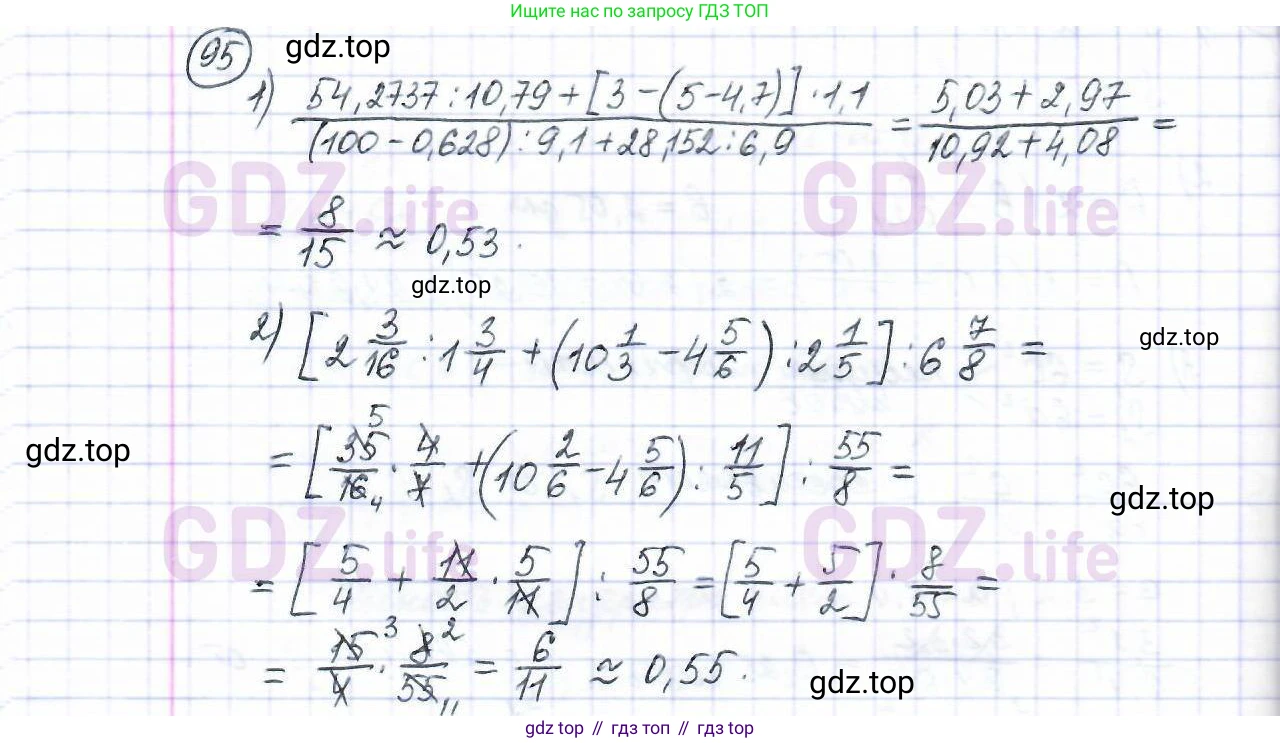 Ищите нас по запросу ГДЗ ТОП
95
gdz.top
1) (54,2737 : 10,79 + [3 - (5 - 4,7)] · 1,1) / ((100 - 0,628) : 9,1 + 28,152 : 6,9) = (5,03 + 2,97) / (10,92 + 4,08) =
GDZ.life GDZ.life
= 8/15 ≈ 0,53.
gdz.top
2) [2 3/16 : 1 3/4 + (10 1/3 - 4 5/6) : 2 1/5] : 6 7/8 =
gdz.top
gdz.top
= [35/16 · 4/7 + (10 2/6 - 4 5/6) : 11/5] : 55/8 =
5 4
gdz.top
GDZ.life GDZ.life
= [5/4 + 11/2 · 5/11] : 55/8 = [5/4 + 5/2] · 8/55 =
= 15/4 · 8/55 = 6/11 ≈ 0,55.
3 2 11
gdz.top
gdz top // гдз топ // gdz top